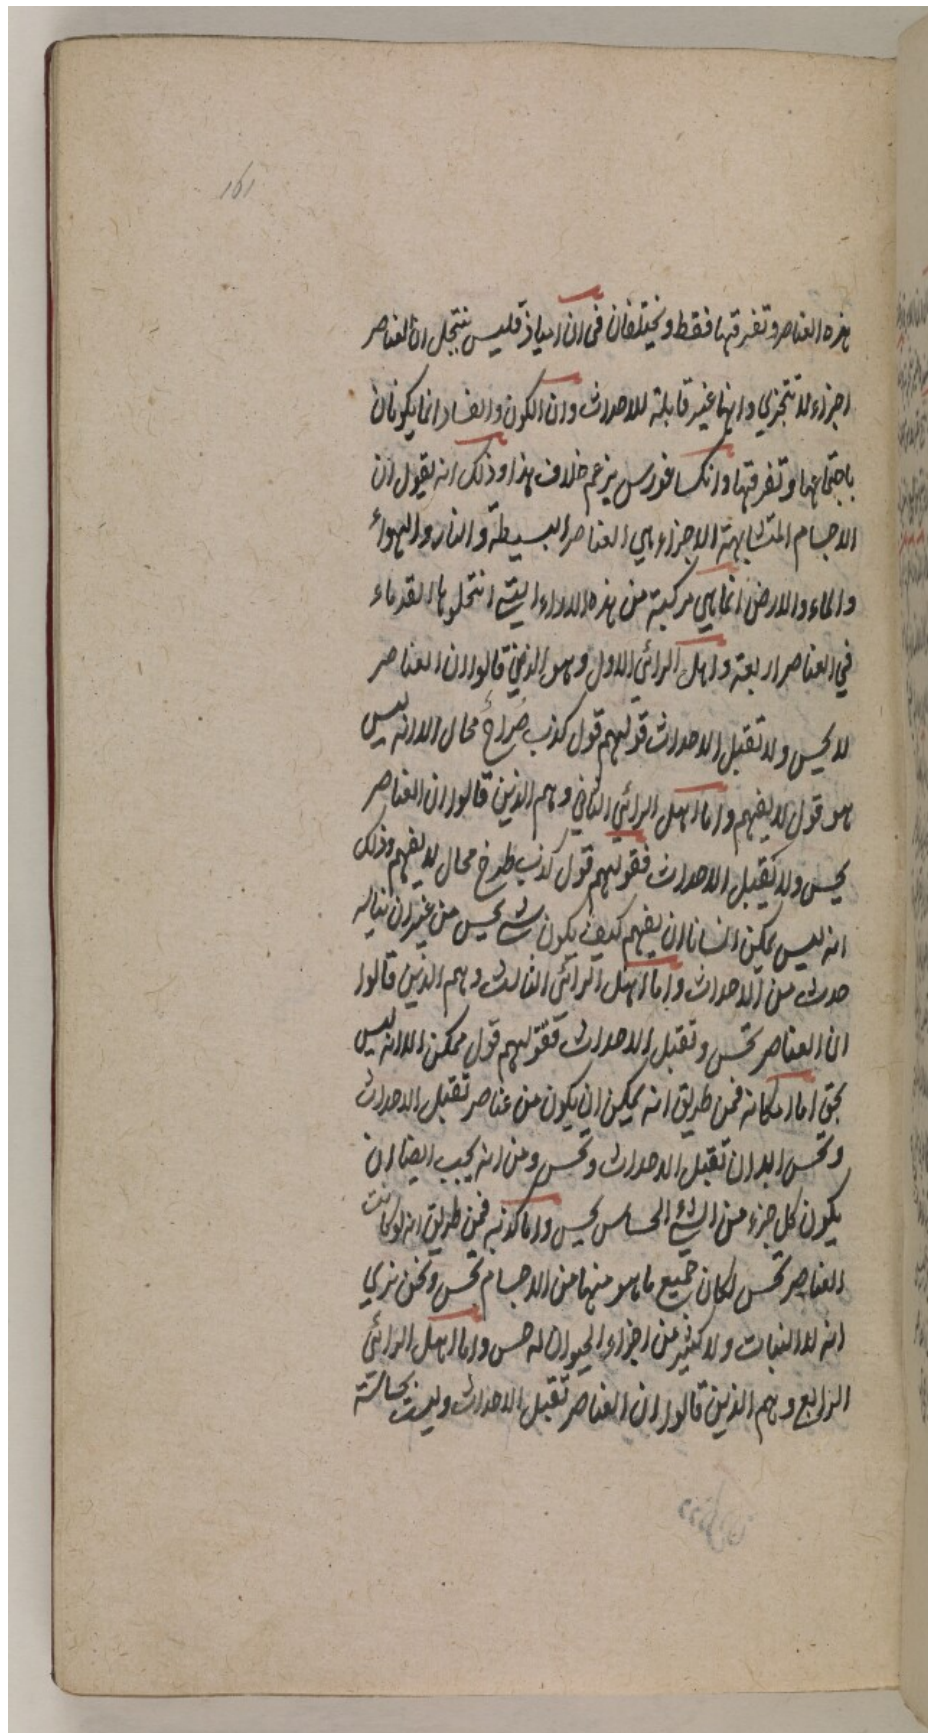 ١٥١
هذه العناصر وتفرقتها فقط ويختلفان فى ان انبياذقليس ينتحل ان العناصر
اجزاء لا تتجزي وانها غير قابلة للاحداث وان الكون والفساد انما يكونان
باجتماعها وتفرقتها وانكساغورس يزعم خلاف هذا وذلك انه يقول ان
الاجسام المتشابهة الاجزاء هي العناصر البسيطة والنار والهواء
والماء والارض انما هي مركبة من هذه الاراء التي انتحلوها القدماء
في العناصر اربعة واهل الرائ الاول وهو الذين قالوا ان العناصر
لا يحس ولا تقبل الاحداث قولهم قول كذب صُراحٌ محال الا انه ليس
هو قول لا يفهم واما اهل الرائي الثاني وهم الذين قالوا ان العناصر
يحس ولا تقبل الاحداث فقولهم قول كذب محال لا يفهم وذلك
انه ليس يمكن انسانا ان يفهم كيف يكون شي يحس من غير ان يناله
حدث من الاحداث واما اهل الرائ الثالث وهم الذين قالوا
ان العناصر تحس وتقبل الاحداث فقولهم قول ممكن الا انه ليس
بحق اما امكانه فمن طريق انه يمكن ان يكون من عناصر تقبل الاحداث
وتحس ابدان تقبل الاحداث وتحس ومن انه يجب ايضا ان
يكون كل جزء من الشئ الحساس يحس واما كذبه فمن طريق انه لو كانت
العناصر تحس لكان جميع ما هو منها من الاجسام تحس ونحن نري
انه لا النبات ولا كثير من اجزاء الحيوان له حس واما اهل الرائي
الرابع وهم الذين قالوا ان العناصر تقبل الاحداث وليست بحاسة